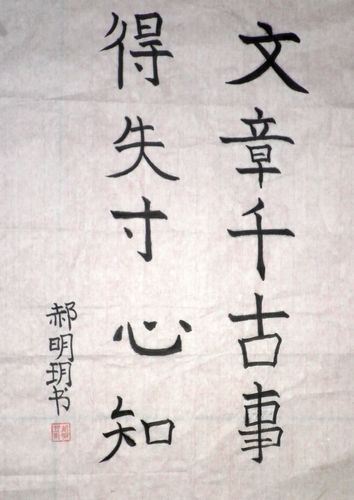 文章千古事
得失寸心知
郝明玥书